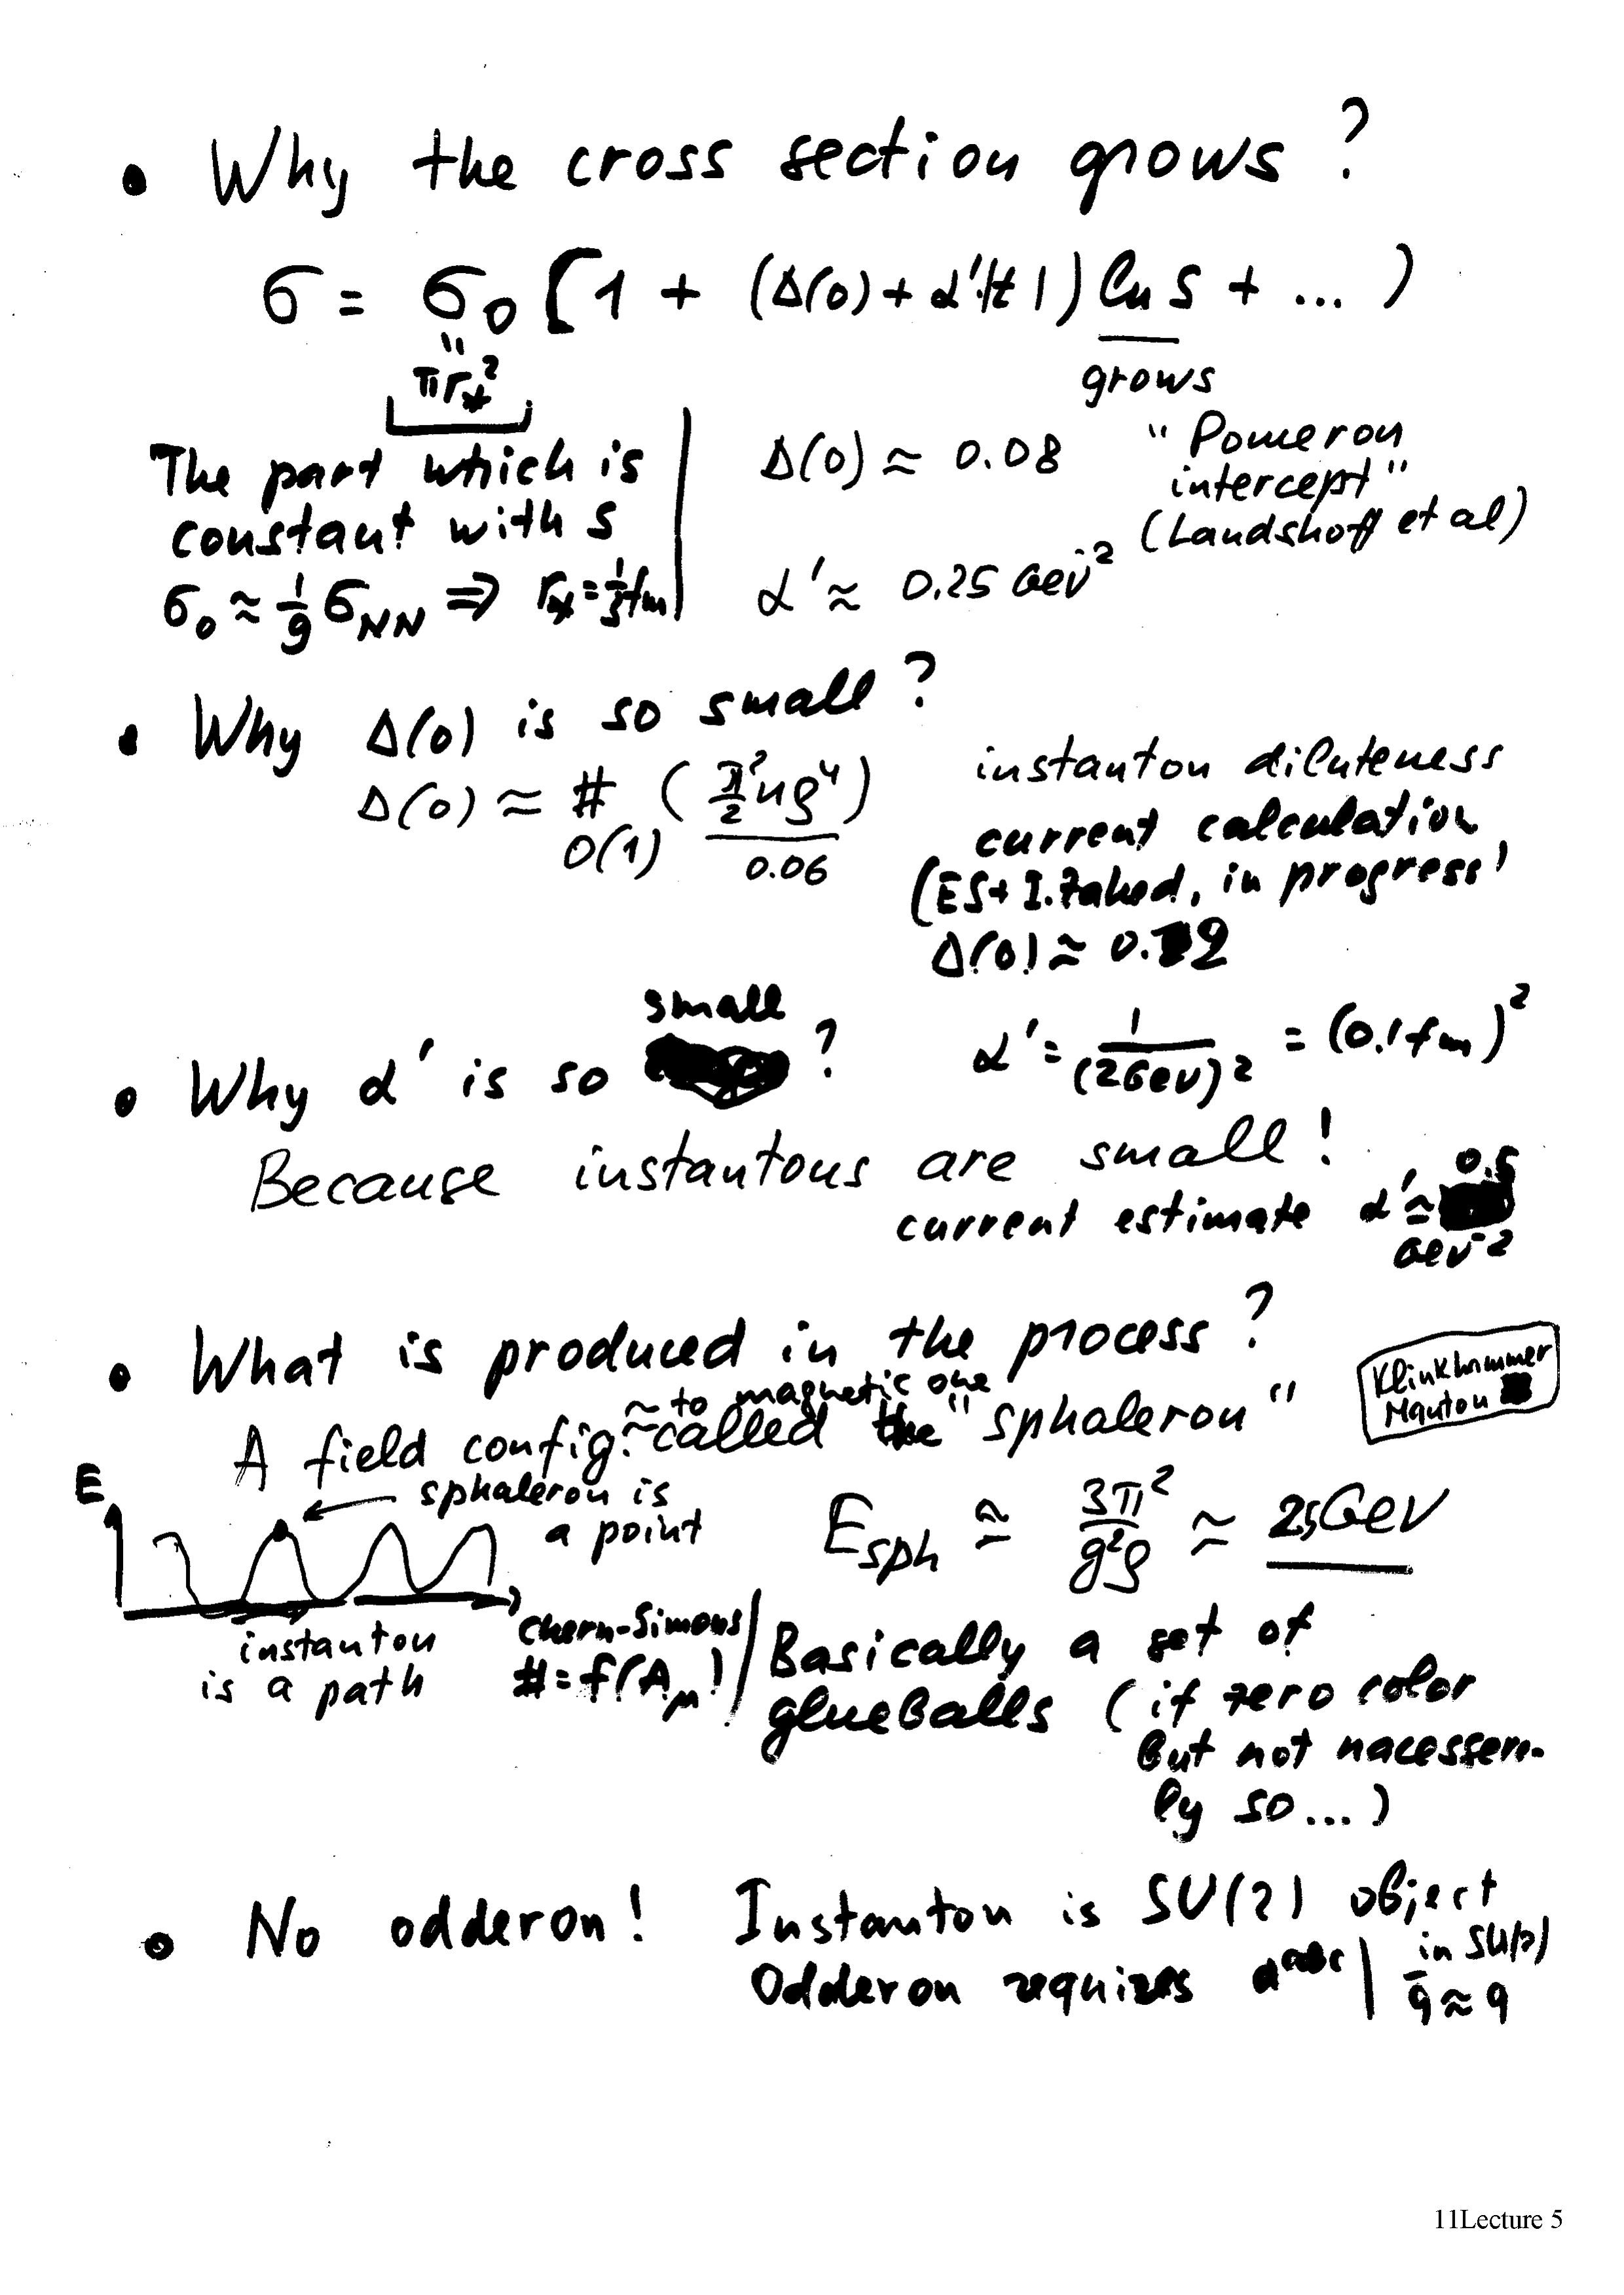 • Why the cross section grows?
σ = σ₀ [1 + (Δ(0) + α'|t|) ln s + ... )
"
πr*²
grows
The part which is
constant with s
σ₀ ≈ 1/9 σ_NN ⇒ r* = 1/3 fm
Δ(0) ≈ 0.08
"Pomeron
intercept"
(Landshoff et al)
α' ≈ 0.25 GeV⁻²
• Why Δ(0) is so small?
Δ(0) ≈ # (π²/2 nρ⁴)
O(1) 0.06
instanton diluteness
current calculation
(ES+I.Zahed, in progress)
Δ(0) ≈
• Why α' is so small ?
α' = 1/(2GeV)² = (0.1fm)²
Because instantons are small!
current estimate α' ≈ 0.5
GeV⁻²
• What is produced in the process?
~ to magnetic one
A field config. called the "sphaleron"
Klinkhammer
Manton
E
sphaleron is
a point
E_sph ≅ 3π²/g²ρ ≈ 2.5GeV
instanton
is a path
Chern-Simons
# = f(A_μ)
Basically a set of
glueballs (if zero color
But not nacesseri-
ly so...)
• No odderon! Instanton is SU(2) object
Odderon requires d^abc
in SU(2)
q̄ ≈ q
11Lecture 5